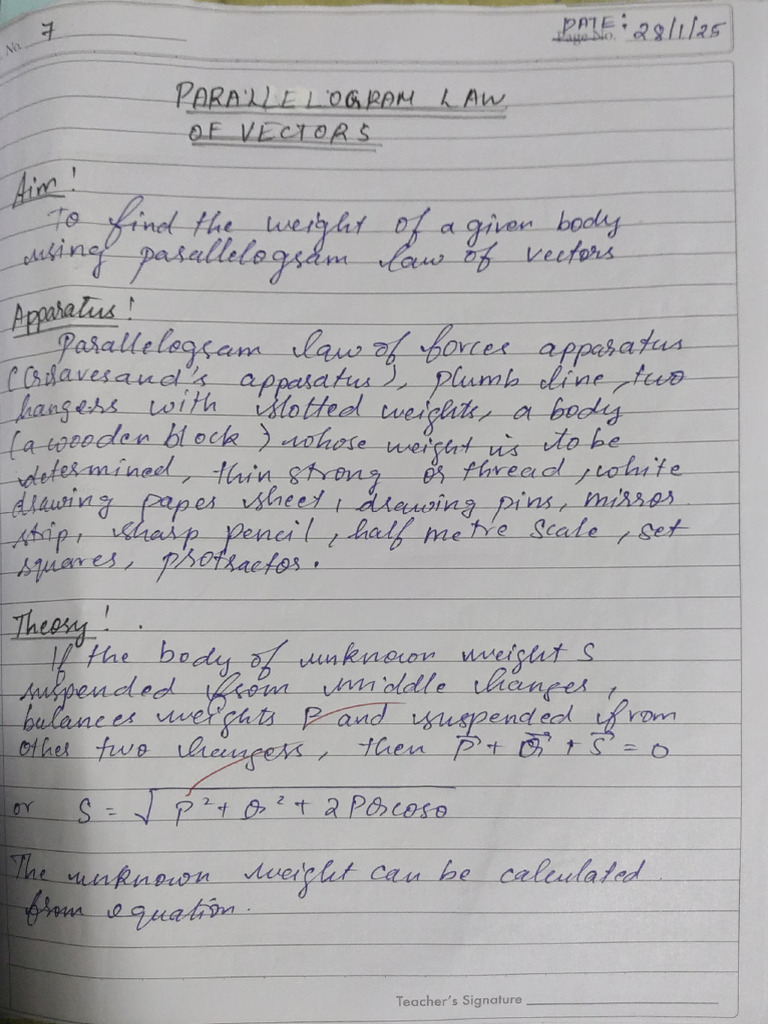 No. 7
DATE: 28/1/25
Page No.
PARALLELOGRAM LAW
OF VECTORS
Aim:
To find the weight of a given body
using parallelogram law of vectors
Apparatus:
Parallelogram law of forces apparatus
(Gravesand's apparatus), plumb line, two
hangers with slotted weights, a body
(a wooden block) whose weight is to be
determined, thin strong or thread, white
drawing paper sheet, drawing pins, mirror
strip, sharp pencil, half metre scale, set
squares, protractor.
Theory:
If the body of unknown weight S
suspended from middle hanger,
balances weights P and suspended from
other two hangers, then P⃗ + Q⃗ + S⃗ = 0
or S = √P² + Q² + 2PQcosθ
The unknown weight can be calculated
from equation.
Teacher's Signature